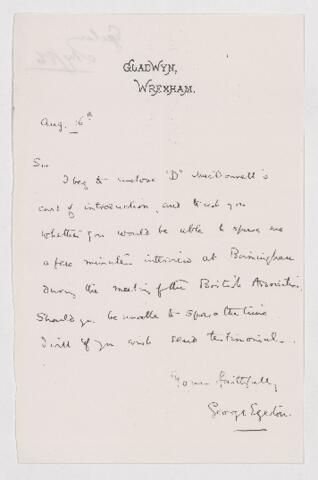 GLADWYN,
WREXHAM.
Aug. 6th
Sir
I beg to enclose "Dr" MacDonnell's
card of introduction, and to ask you
whether you would be able to spare me
a few minutes interview at Birmingham
during the meeting of the British Association.
Should you be unable to spare the time
I will if you wish send testimonials.
Yours faithfully,
George Egedon.